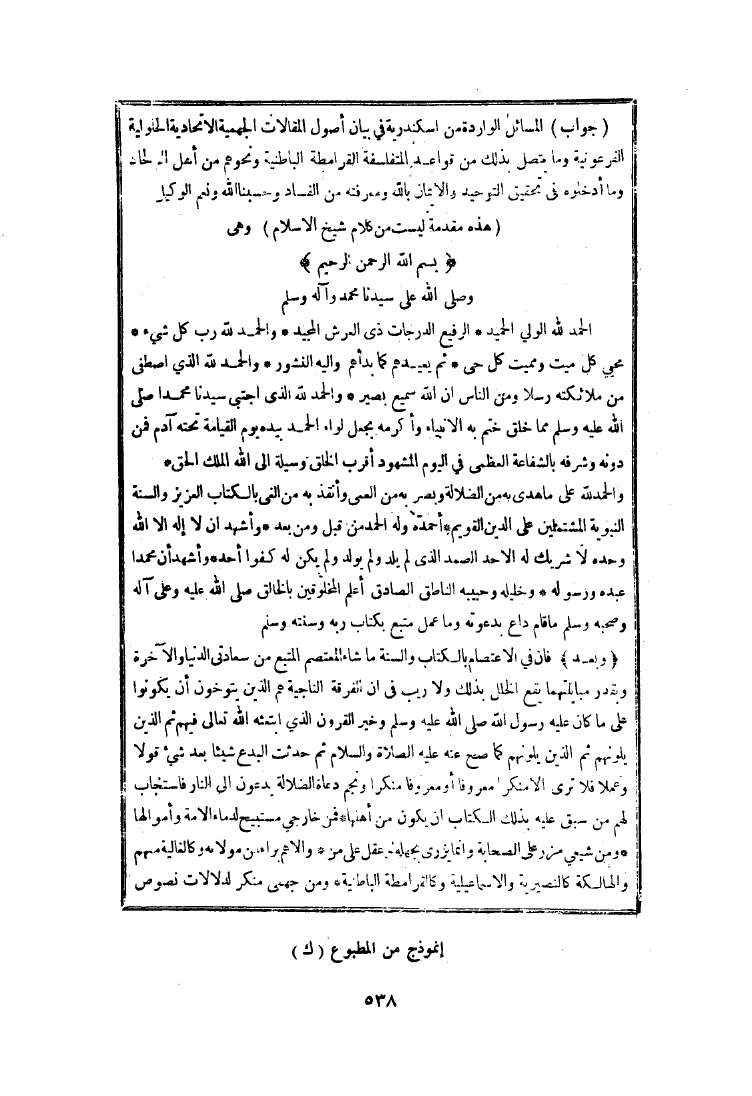 ( جواب ) المسائل الواردة من اسكندرية في بيان أصول المقالات الجهمية الاتحادية الحلولية
الفرعونية وما يتصل بذلك من قواعد المتفلسفة القرامطة الباطنية ونحوهم من أهل الالحاد
وما أدخلوه في تحقيق التوحيد والايمان بالله ومعرفته من الفساد وحسبنا الله ونعم الوكيل
( هذه مقدمة ليست من كلام شيخ الاسلام ) وهي
﴿ بسم الله الرحمن الرحيم ﴾
وصلى الله على سيدنا محمد وآله وسلم
الحمد لله الولي الحميد * الرفيع الدرجات ذي العرش المجيد * والحمد لله رب كل شيء *
محيي كل ميت ومميت كل حي * ثم يعيدهم كما بدأهم واليه النشور * والحمد لله الذي اصطفى
من ملائكته رسلا ومن الناس ان الله سميع بصير * والحمد لله الذي اجتبى سيدنا محمدا صلى
الله عليه وسلم مما خلق ختم به الانبياء وأكرمه بجعل لواء الحمد بيده يوم القيامة تحته آدم فمن
دونه وشرفه بالشفاعة العظمى في اليوم المشهود أقرب الخلق وسيلة الى الله الملك الحق *
والحمد لله على ما هدى به من الضلالة وبصر به من العمى وأنقذ به من الغي بالكتاب العزيز والسنة
النبوية المشتملين على الدين القويم * أحمده وله الحمد من قبل ومن بعد * وأشهد ان لا إله الا الله
وحده لا شريك له الاحد الصمد الذي لم يلد ولم يولد ولم يكن له كفوا أحد * وأشهد أن محمدا
عبده ورسوله * وخليله وحبيبه الناطق الصادق أعلم المخلوقين بالخالق صلى الله عليه وعلى آله
وصحبه وسلم ما قام داع بدعوته وما عمل متبع بكتاب ربه وسنته وسلم
﴿ وبعد ﴾ فان في الاعتصام بالكتاب والسنة ما شاء المعتصم المتبع من سعادتي الدنيا والآخرة
وبقدر يقع الخلل بذلك ولا ريب في ان الفرقة الناجية هم الذين يتوخون أن يكونوا
على ما كان عليه رسول الله صلى الله عليه وسلم وخير القرون الذي ابتعثه الله تعالى فيهم ثم الذين
يلونهم ثم الذين يلونهم كما صح عنه عليه الصلاة والسلام ثم حدثت البدع شيئا بعد شيء قولا
وعملا فلا ترى الا منكرا معروفا أو معروفا منكرا ونجم دعاة الضلالة يدعون الى النار فاستجاب
لهم من سبق عليه بذلك الكتاب ان يكون من أهلها * فمن خارجي مستبيح لدماء الامة وأموالها
* ومن شيعي مزر على الصحابة وانما يزرى بجهله عقل على من * والامر براء من مولاه وكالغالية منهم
والهالكة كالنصيرية والاسماعيلية وكالقرامطة الباطنية * ومن جهمي منكر لدلالات نصوص
إنموذج من المطبوع ( ك )
٥٣٨